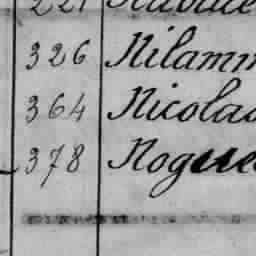 326 Nilamm
364 Nicolao
378 Nogue